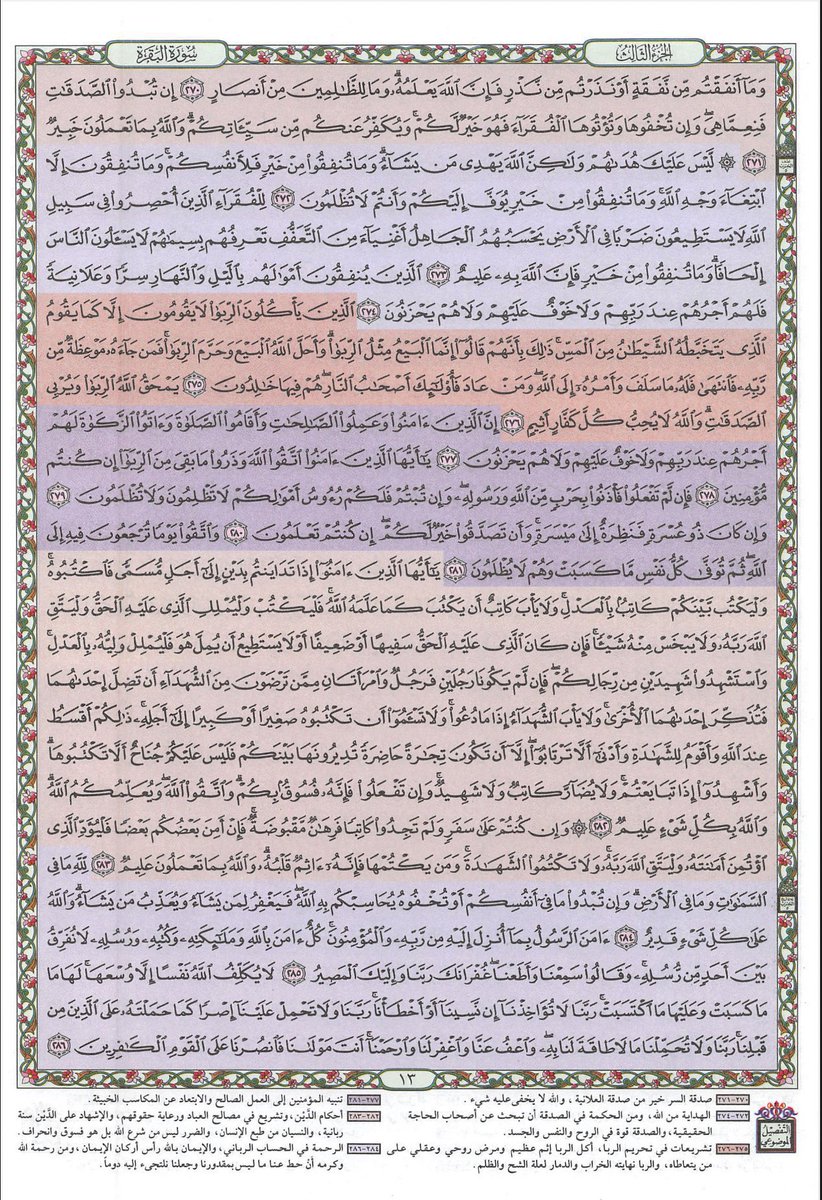 الجزء الثالث
سورة البقرة
وَمَآ أَنفَقْتُم مِّن نَّفَقَةٍ أَوْ نَذَرْتُم مِّن نَّذْرٍ فَإِنَّ ٱللَّهَ يَعْلَمُهُۥ ۗ وَمَا لِلظَّٰلِمِينَ مِنْ أَنصَارٍ ٢٧٠ إِن تُبْدُوا۟ ٱلصَّدَقَٰتِ
فَنِعِمَّا هِىَ ۖ وَإِن تُخْفُوهَا وَتُؤْتُوهَا ٱلْفُقَرَآءَ فَهُوَ خَيْرٌ لَّكُمْ ۚ وَيُكَفِّرُ عَنكُم مِّن سَيِّـَٔاتِكُمْ ۗ وَٱللَّهُ بِمَا تَعْمَلُونَ خَبِيرٌ
٢٧١ ۞ لَّيْسَ عَلَيْكَ هُدَىٰهُمْ وَلَٰكِنَّ ٱللَّهَ يَهْدِى مَن يَشَآءُ ۗ وَمَا تُنفِقُوا۟ مِنْ خَيْرٍ فَلِأَنفُسِكُمْ ۚ وَمَا تُنفِقُونَ إِلَّا
ٱبْتِغَآءَ وَجْهِ ٱللَّهِ ۚ وَمَا تُنفِقُوا۟ مِنْ خَيْرٍ يُوَفَّ إِلَيْكُمْ وَأَنتُمْ لَا تُظْلَمُونَ ٢٧٢ لِلْفُقَرَآءِ ٱلَّذِينَ أُحْصِرُوا۟ فِى سَبِيلِ
ٱللَّهِ لَا يَسْتَطِيعُونَ ضَرْبًا فِى ٱلْأَرْضِ يَحْسَبُهُمُ ٱلْجَاهِلُ أَغْنِيَآءَ مِنَ ٱلتَّعَفُّفِ تَعْرِفُهُم بِسِيمَٰهُمْ لَا يَسْـَٔلُونَ ٱلنَّاسَ
إِلْحَافًا ۗ وَمَا تُنفِقُوا۟ مِنْ خَيْرٍ فَإِنَّ ٱللَّهَ بِهِۦ عَلِيمٌ ٢٧٣ ٱلَّذِينَ يُنفِقُونَ أَمْوَٰلَهُم بِٱلَّيْلِ وَٱلنَّهَارِ سِرًّا وَعَلَانِيَةً
فَلَهُمْ أَجْرُهُمْ عِندَ رَبِّهِمْ وَلَا خَوْفٌ عَلَيْهِمْ وَلَا هُمْ يَحْزَنُونَ ٢٧٤ ٱلَّذِينَ يَأْكُلُونَ ٱلرِّبَوٰا۟ لَا يَقُومُونَ إِلَّا كَمَا يَقُومُ
ٱلَّذِى يَتَخَبَّطُهُ ٱلشَّيْطَٰنُ مِنَ ٱلْمَسِّ ۚ ذَٰلِكَ بِأَنَّهُمْ قَالُوٓا۟ إِنَّمَا ٱلْبَيْعُ مِثْلُ ٱلرِّبَوٰا۟ ۗ وَأَحَلَّ ٱللَّهُ ٱلْبَيْعَ وَحَرَّمَ ٱلرِّبَوٰا۟ ۚ فَمَن جَآءَهُۥ مَوْعِظَةٌ مِّن
رَّبِّهِۦ فَٱنتَهَىٰ فَلَهُۥ مَا سَلَفَ وَأَمْرُهُۥٓ إِلَى ٱللَّهِ ۖ وَمَنْ عَادَ فَأُو۟لَٰٓئِكَ أَصْحَٰبُ ٱلنَّارِ ۖ هُمْ فِيهَا خَٰلِدُونَ ٢٧٥ يَمْحَقُ ٱللَّهُ ٱلرِّبَوٰا۟ وَيُرْبِى
ٱلصَّدَقَٰتِ ۗ وَٱللَّهُ لَا يُحِبُّ كُلَّ كَفَّارٍ أَثِيمٍ ٢٧٦ إِنَّ ٱلَّذِينَ ءَامَنُوا۟ وَعَمِلُوا۟ ٱلصَّٰلِحَٰتِ وَأَقَامُوا۟ ٱلصَّلَوٰةَ وَءَاتَوُا۟ ٱلزَّكَوٰةَ لَهُمْ
أَجْرُهُمْ عِندَ رَبِّهِمْ وَلَا خَوْفٌ عَلَيْهِمْ وَلَا هُمْ يَحْزَنُونَ ٢٧٧ يَٰٓأَيُّهَا ٱلَّذِينَ ءَامَنُوا۟ ٱتَّقُوا۟ ٱللَّهَ وَذَرُوا۟ مَا بَقِىَ مِنَ ٱلرِّبَوٰٓا۟ إِن كُنتُم
مُّؤْمِنِينَ ٢٧٨ فَإِن لَّمْ تَفْعَلُوا۟ فَأْذَنُوا۟ بِحَرْبٍ مِّنَ ٱللَّهِ وَرَسُولِهِۦ ۖ وَإِن تُبْتُمْ فَلَكُمْ رُءُوسُ أَمْوَٰلِكُمْ لَا تَظْلِمُونَ وَلَا تُظْلَمُونَ ٢٧٩
وَإِن كَانَ ذُو عُسْرَةٍ فَنَظِرَةٌ إِلَىٰ مَيْسَرَةٍ ۚ وَأَن تَصَدَّقُوا۟ خَيْرٌ لَّكُمْ ۖ إِن كُنتُمْ تَعْلَمُونَ ٢٨٠ وَٱتَّقُوا۟ يَوْمًا تُرْجَعُونَ فِيهِ إِلَى
ٱللَّهِ ۖ ثُمَّ تُوَفَّىٰ كُلُّ نَفْسٍ مَّا كَسَبَتْ وَهُمْ لَا يُظْلَمُونَ ٢٨١ يَٰٓأَيُّهَا ٱلَّذِينَ ءَامَنُوٓا۟ إِذَا تَدَايَنتُم بِدَيْنٍ إِلَىٰٓ أَجَلٍ مُّسَمًّى فَٱكْتُبُوهُ ۚ
وَلْيَكْتُب بَّيْنَكُمْ كَاتِبٌۢ بِٱلْعَدْلِ ۚ وَلَا يَأْبَ كَاتِبٌ أَن يَكْتُبَ كَمَا عَلَّمَهُ ٱللَّهُ ۚ فَلْيَكْتُبْ وَلْيُمْلِلِ ٱلَّذِى عَلَيْهِ ٱلْحَقُّ وَلْيَتَّقِ
ٱللَّهَ رَبَّهُۥ وَلَا يَبْخَسْ مِنْهُ شَيْـًٔا ۚ فَإِن كَانَ ٱلَّذِى عَلَيْهِ ٱلْحَقُّ سَفِيهًا أَوْ ضَعِيفًا أَوْ لَا يَسْتَطِيعُ أَن يُمِلَّ هُوَ فَلْيُمْلِلْ وَلِيُّهُۥ بِٱلْعَدْلِ ۚ
وَٱسْتَشْهِدُوا۟ شَهِيدَيْنِ مِن رِّجَالِكُمْ ۖ فَإِن لَّمْ يَكُونَا رَجُلَيْنِ فَرَجُلٌ وَٱمْرَأَتَانِ مِمَّن تَرْضَوْنَ مِنَ ٱلشُّهَدَآءِ أَن تَضِلَّ إِحْدَىٰهُمَا
فَتُذَكِّرَ إِحْدَىٰهُمَا ٱلْأُخْرَىٰ ۚ وَلَا يَأْبَ ٱلشُّهَدَآءُ إِذَا مَا دُعُوا۟ ۚ وَلَا تَسْـَٔمُوٓا۟ أَن تَكْتُبُوهُ صَغِيرًا أَوْ كَبِيرًا إِلَىٰٓ أَجَلِهِۦ ۚ ذَٰلِكُمْ أَقْسَطُ
عِندَ ٱللَّهِ وَأَقْوَمُ لِلشَّهَٰدَةِ وَأَدْنَىٰٓ أَلَّا تَرْتَابُوٓا۟ ۖ إِلَّآ أَن تَكُونَ تِجَٰرَةً حَاضِرَةً تُدِيرُونَهَا بَيْنَكُمْ فَلَيْسَ عَلَيْكُمْ جُنَاحٌ أَلَّا تَكْتُبُوهَا ۗ
وَأَشْهِدُوٓا۟ إِذَا تَبَايَعْتُمْ ۚ وَلَا يُضَآرَّ كَاتِبٌ وَلَا شَهِيدٌ ۚ وَإِن تَفْعَلُوا۟ فَإِنَّهُۥ فُسُوقٌۢ بِكُمْ ۗ وَٱتَّقُوا۟ ٱللَّهَ ۖ وَيُعَلِّمُكُمُ ٱللَّهُ ۗ
وَٱللَّهُ بِكُلِّ شَىْءٍ عَلِيمٌ ٢٨٢ ۞ وَإِن كُنتُمْ عَلَىٰ سَفَرٍ وَلَمْ تَجِدُوا۟ كَاتِبًا فَرِهَٰنٌ مَّقْبُوضَةٌ ۖ فَإِنْ أَمِنَ بَعْضُكُم بَعْضًا فَلْيُؤَدِّ ٱلَّذِى
ٱؤْتُمِنَ أَمَٰنَتَهُۥ وَلْيَتَّقِ ٱللَّهَ رَبَّهُۥ ۗ وَلَا تَكْتُمُوا۟ ٱلشَّهَٰدَةَ ۚ وَمَن يَكْتُمْهَا فَإِنَّهُۥٓ ءَاثِمٌ قَلْبُهُۥ ۗ وَٱللَّهُ بِمَا تَعْمَلُونَ عَلِيمٌ ٢٨٣ لِّلَّهِ مَا فِى
ٱلسَّمَٰوَٰتِ وَمَا فِى ٱلْأَرْضِ ۗ وَإِن تُبْدُوا۟ مَا فِىٓ أَنفُسِكُمْ أَوْ تُخْفُوهُ يُحَاسِبْكُم بِهِ ٱللَّهُ ۖ فَيَغْفِرُ لِمَن يَشَآءُ وَيُعَذِّبُ مَن يَشَآءُ ۗ وَٱللَّهُ
عَلَىٰ كُلِّ شَىْءٍ قَدِيرٌ ٢٨٤ ءَامَنَ ٱلرَّسُولُ بِمَآ أُنزِلَ إِلَيْهِ مِن رَّبِّهِۦ وَٱلْمُؤْمِنُونَ ۚ كُلٌّ ءَامَنَ بِٱللَّهِ وَمَلَٰٓئِكَتِهِۦ وَكُتُبِهِۦ وَرُسُلِهِۦ لَا نُفَرِّقُ
بَيْنَ أَحَدٍ مِّن رُّسُلِهِۦ ۚ وَقَالُوا۟ سَمِعْنَا وَأَطَعْنَا ۖ غُفْرَانَكَ رَبَّنَا وَإِلَيْكَ ٱلْمَصِيرُ ٢٨٥ لَا يُكَلِّفُ ٱللَّهُ نَفْسًا إِلَّا وُسْعَهَا ۚ لَهَا مَا
كَسَبَتْ وَعَلَيْهَا مَا ٱكْتَسَبَتْ ۗ رَبَّنَا لَا تُؤَاخِذْنَآ إِن نَّسِينَآ أَوْ أَخْطَأْنَا ۚ رَبَّنَا وَلَا تَحْمِلْ عَلَيْنَآ إِصْرًا كَمَا حَمَلْتَهُۥ عَلَى ٱلَّذِينَ مِن
قَبْلِنَا ۚ رَبَّنَا وَلَا تُحَمِّلْنَا مَا لَا طَاقَةَ لَنَا بِهِۦ ۖ وَٱعْفُ عَنَّا وَٱغْفِرْ لَنَا وَٱرْحَمْنَآ ۚ أَنتَ مَوْلَىٰنَا فَٱنصُرْنَا عَلَى ٱلْقَوْمِ ٱلْكَٰفِرِينَ ٢٨٦
١٣
التفصيل الموضوعي
٢٧٠-٢٧١ صدقة السر خير من صدقة العلانية ، والله لا يخفى عليه شيء .
٢٧٢-٢٧٤ الهداية من الله، ومن الحكمة في الصدقة أن تبحث عن أصحاب الحاجة
الحقيقية، والصدقة قوة في الروح والنفس والجسد.
٢٧٥-٢٧٦ تشريعات في تحريم الربا، أكل الربا إثم عظيم ومرض روحي وعقلي على
من يتعاطاه، والربا نهايته الخراب والدمار لعلة الشح والظلم.
٢٧٧-٢٨١ تنبيه المؤمنين إلى العمل الصالح والابتعاد عن المكاسب الخبيثة.
٢٨٢-٢٨٣ أحكام الدَّيْن، وتشريع في مصالح العباد ورعاية حقوقهم، والإشهاد على الدَّيْن سنة
ربانية، والنسيان من طبع الإنسان، والضرر ليس من شرع الله بل هو فسوق وانحراف.
٢٨٤-٢٨٦ الرحمة في الحساب الرباني، والإيمان بالله رأس أركان الإيمان، ومن رحمة الله
وكرمه أنْ حط عنا ما ليس بمقدورنا وجعلنا نلتجىء إليه دوماً.